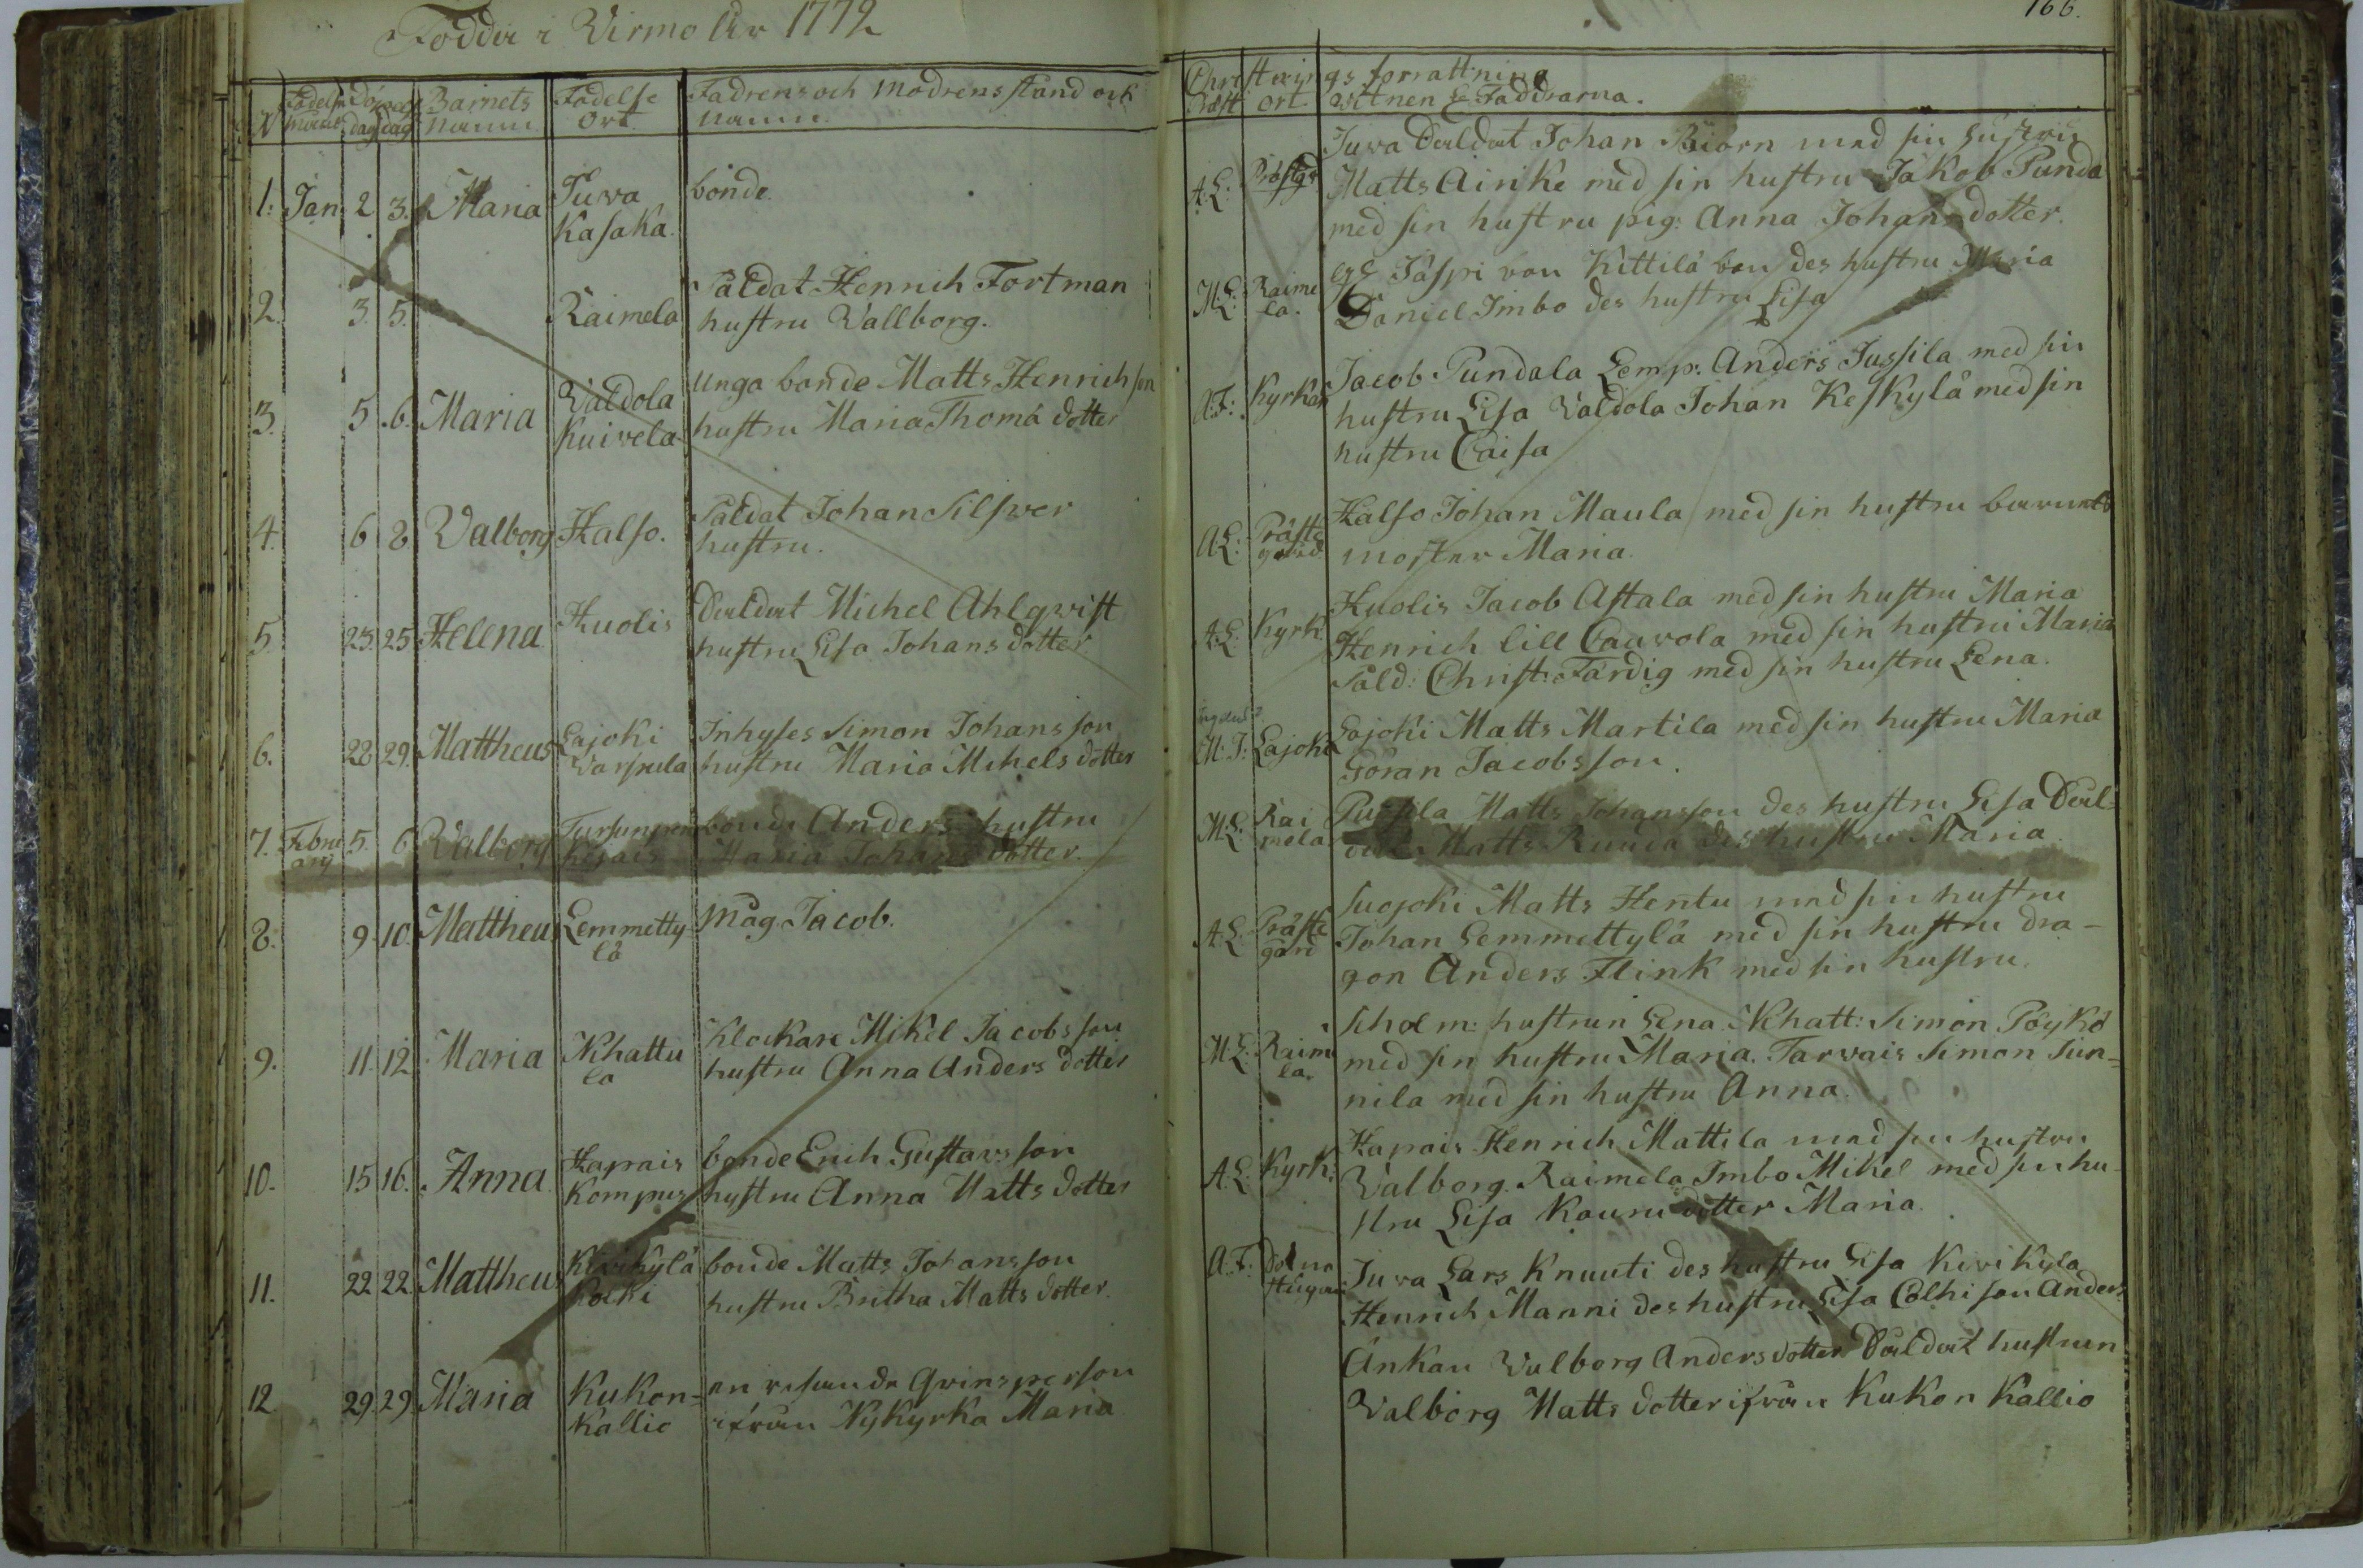 Födder i Virmo År 1772
166.
No Födelse månat dag Döpelse dag Barnets namn Födelse ort Fadrens och modrens stånd och namn
Christnings förrättning
Præst ort witnen & Faddrarna.
1. Jan 2 3. Maria Juva Kasaka. bonde.
A.L: Prästg Juva Saldat Johan Biörn med sin hustru
Matts Ainike med sin hustru Jakob Punda
med sin hustru pig: Anna Johans dotter.
2. 3. 5. Raimela Saldat Henrich Fortman
hustru Wallborg.
M.L: Raimela. Jäspri von Kittilä bon des hustru Maria
Daniel Imbo des hustru Lisa
3. 5 6. Maria Valdola Kuivela unga bonde Matts Henrichson
hustru Maria Thomä dotter
A.F: Kyrkan Jacob Pundala Lemp: Anders Jussila med sin
hustru Lisa Valdola Johan Keskylä med sin
hustru Caisa
4. 6 8. Valborg Halso. Saldat Johan Silfwer
hustru.
A.L: Prästegård Halso Johan Maula med sin hustru barnets
moster Maria.
5. 23. 25 Helena Huolis Saldat Michel Ahlqwist
hustru Lisa Johans dotter
A.L. Kyrk Huolis Jacob Astala med sin hustru Maria
Henrich lill Cauvola med sin hustru Maria
Sald: Christ: Färdig med sin hustru Lena.
6. 28 29. Mattheus Lajoki Warpula Inhyses Simon Johans son
hustru Maria Mihels dotter
M.I: Lajoki Lajoki Matts Martila med sin hustru Maria
Göran Jacobsson.
7. Februari 5. 6 Valborg bonde Anders hustru
Maria Johans dotter.
M.L: Raimela Matts Johansson des hustru Lisa Sal-
dat Matts Runda des hustru Maria.
8. 9. 10. Mattheus Lemmettylä Måg Jacob.
A.L. Prästegård Suojoki Matts Hentu med sin hustru
Johan Lemmettylä med sin hustru dra-
gon Anders Flink med sin hustru.
9. 11. 12. Maria Nihattula Klockare Mikel Jacobs son
hustru Anna Anders dotter
M.L: Raimela. hustrun Lena. Nihatt: Simon Pöykö
med sin hustru Maria. Tarvais Simon Sun-
nila med sin hustru Anna.
10. 15 16. Anna Hapais Kompus bonde Erich Gustavsson
hustru Anna Matts dotter
A.L. Kyrk: Hapais Henrich Mattila med sin hustru
Valborg. Raimela Imbo Mikel med sin hu-
stru Lisa Kauni dotter Maria.
11. 22 22. Mattheus Kivikylä bonde Matts Johansson
hustru Britha Matts dotter.
A.F. Juva Lars Knuuti des hustru Lisa Kivikyla
Henrich Manni des hustru Lisa Cölhi son Anders
12. 29. 29. Maria Kukonkallio en resande qvinsperson
ifrån Nykyrka Maria
Änkan Valborg Andersdotter Saldat hustrun
Valborg Matts dotter ifrån Kukon Kallio